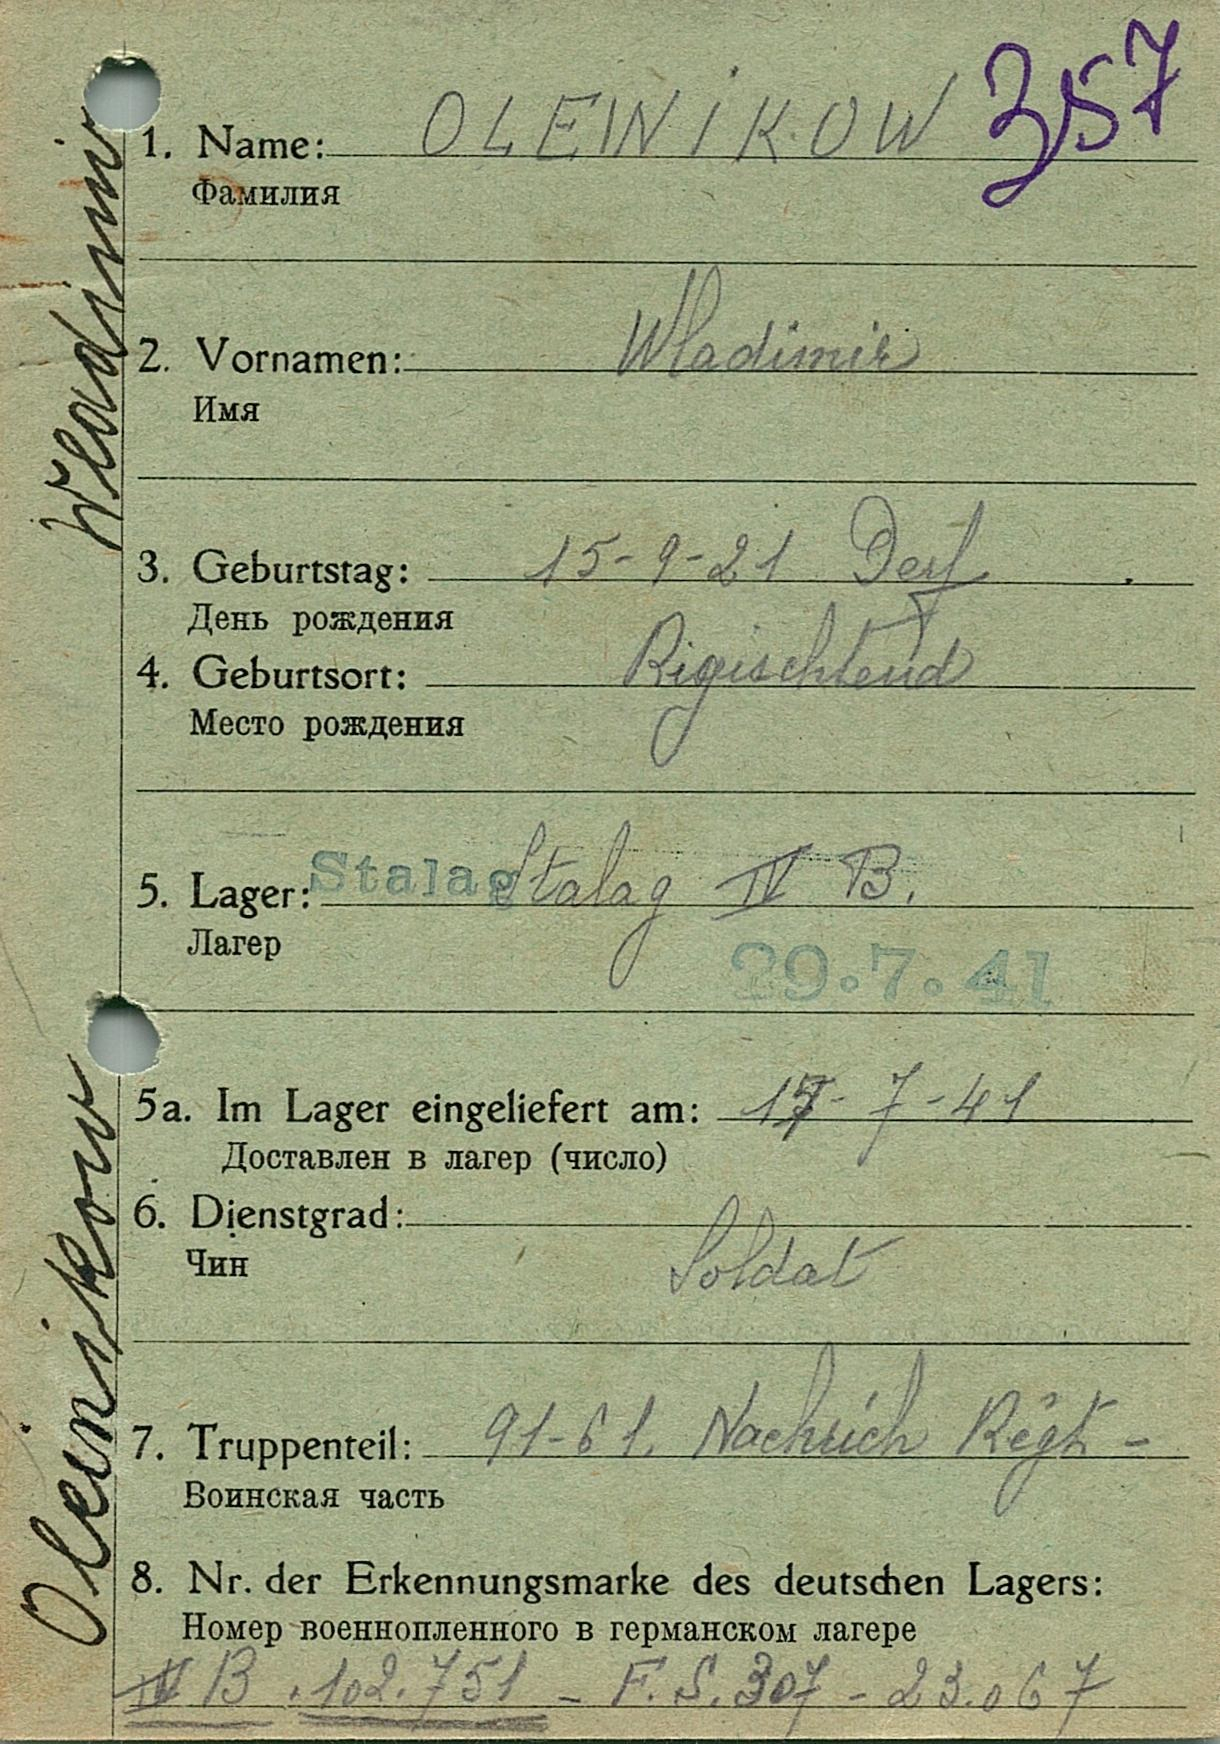 357
1. Name: OLEINIKOW
Фамилия
2. Vornamen: Wladimir
Имя
3. Geburtstag: 15-9-21
День рождения
4. Geburtsort:
Место рождения
5. Lager: Stalag Stalag IV B.
Лагер
29.7.41
5a. Im Lager eingeliefert am: -7-41
Доставлен в лагер (число)
6. Dienstgrad:
Чин Soldat
7. Truppenteil: 91-61. Nachrich Regt-
Воинская часть
8. Nr. der Erkennungsmarke des deutschen Lagers:
Номер военнопленного в германском лагере
IV B .102.751 - F.S. 307 - 23.067
Oleinikow Wladimir